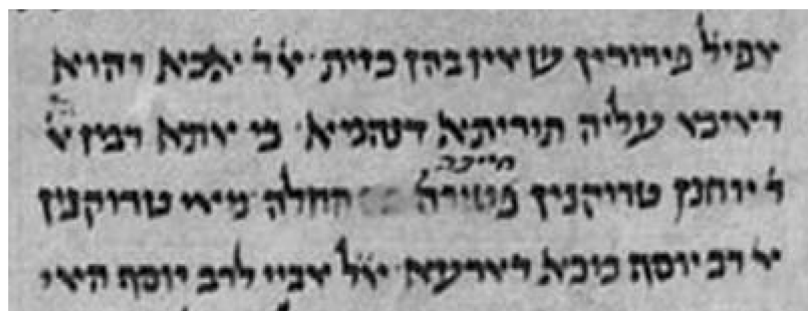 אפיל' פירורין שאין בהן כזית· א'ר' אבא והוא
דאיכא עליה תוריתא דנהמא· כי אתא רבין א'
חייבת
ר' יוחנן טרוקנין פטורה החלה· מאי טרוקנין
א' רב יוסף כובא דארעא· א'ל אביי לרב יוסף האי